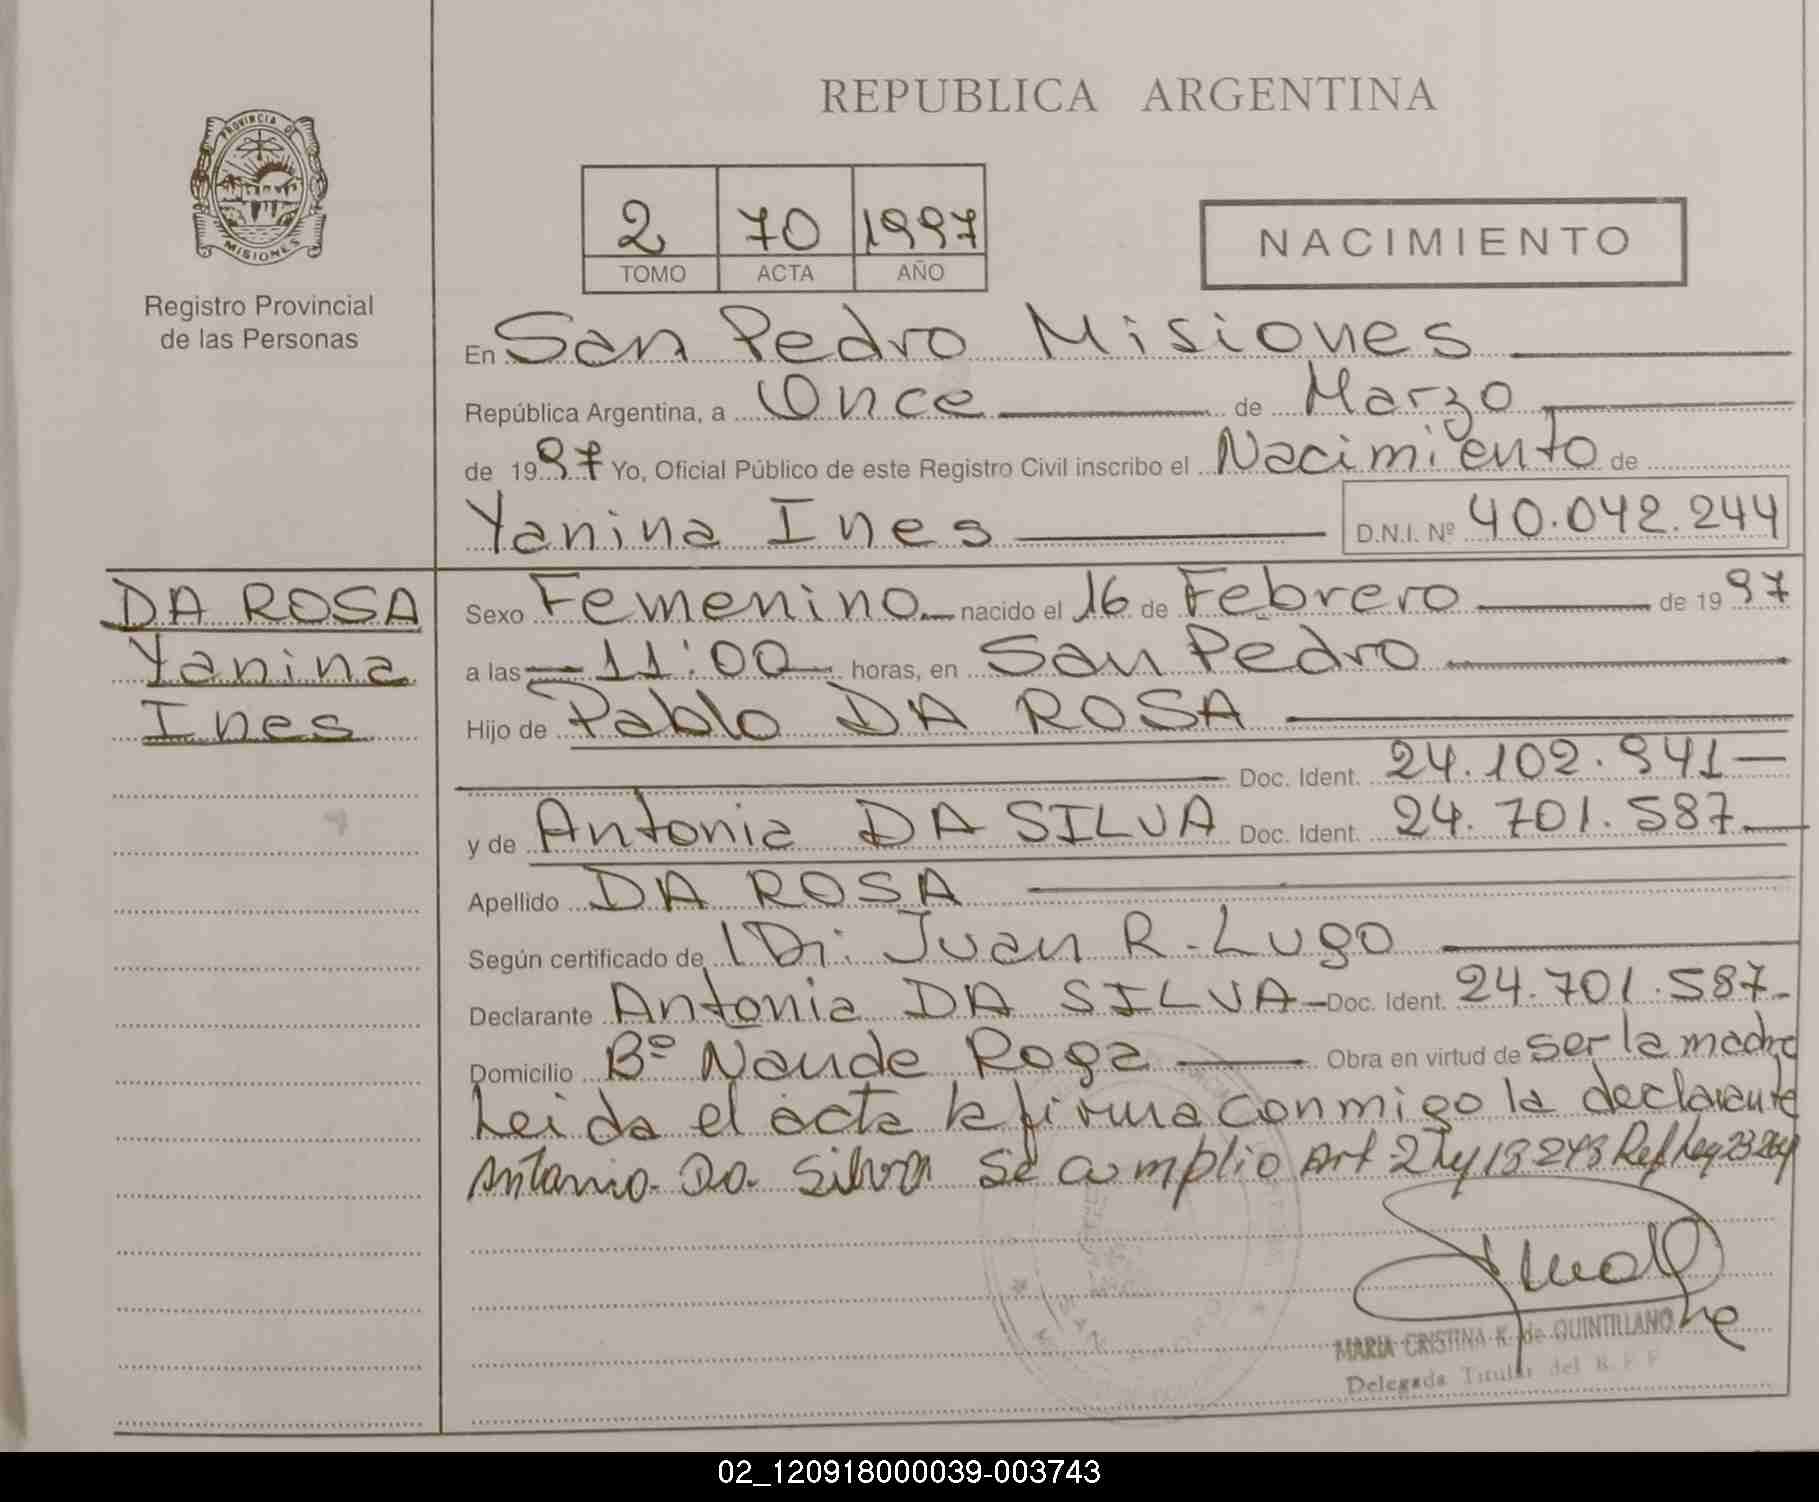 REPUBLICA ARGENTINA
PROVINCIA DE MISIONES
Registro Provincial
de las Personas
2 70 1997
TOMO ACTA AÑO
NACIMIENTO
En San Pedro Misiones
República Argentina, a Once de Marzo
de 1997 Yo, Oficial Público de este Registro Civil inscribo el Nacimiento de
Yanina Ines D.N.I. Nº 40.042.244
DA ROSA
Yanina
Ines
Sexo Femenino nacido el 16 de Febrero de 1997
a las 11:00 horas, en San Pedro
Hijo de Pablo DA ROSA
Doc. Ident. 24.102.941
y de Antonia DA SILVA Doc. Ident. 24.701.587
Apellido DA ROSA
Según certificado de Juan R. Lugo
Declarante Antonia DA SILVA Doc. Ident. 24.701.587
Domicilio Bº Roga Obra en virtud de ser la madre
Leida el acta la firma conmigo la declarante
Antonia Da Silva Se cumplio Art 2 Ley Ref Ley
MARIA CRISTINA K. de QUINTILLANO
Delegada Titular del R. P. P.
02_120918000039-003743